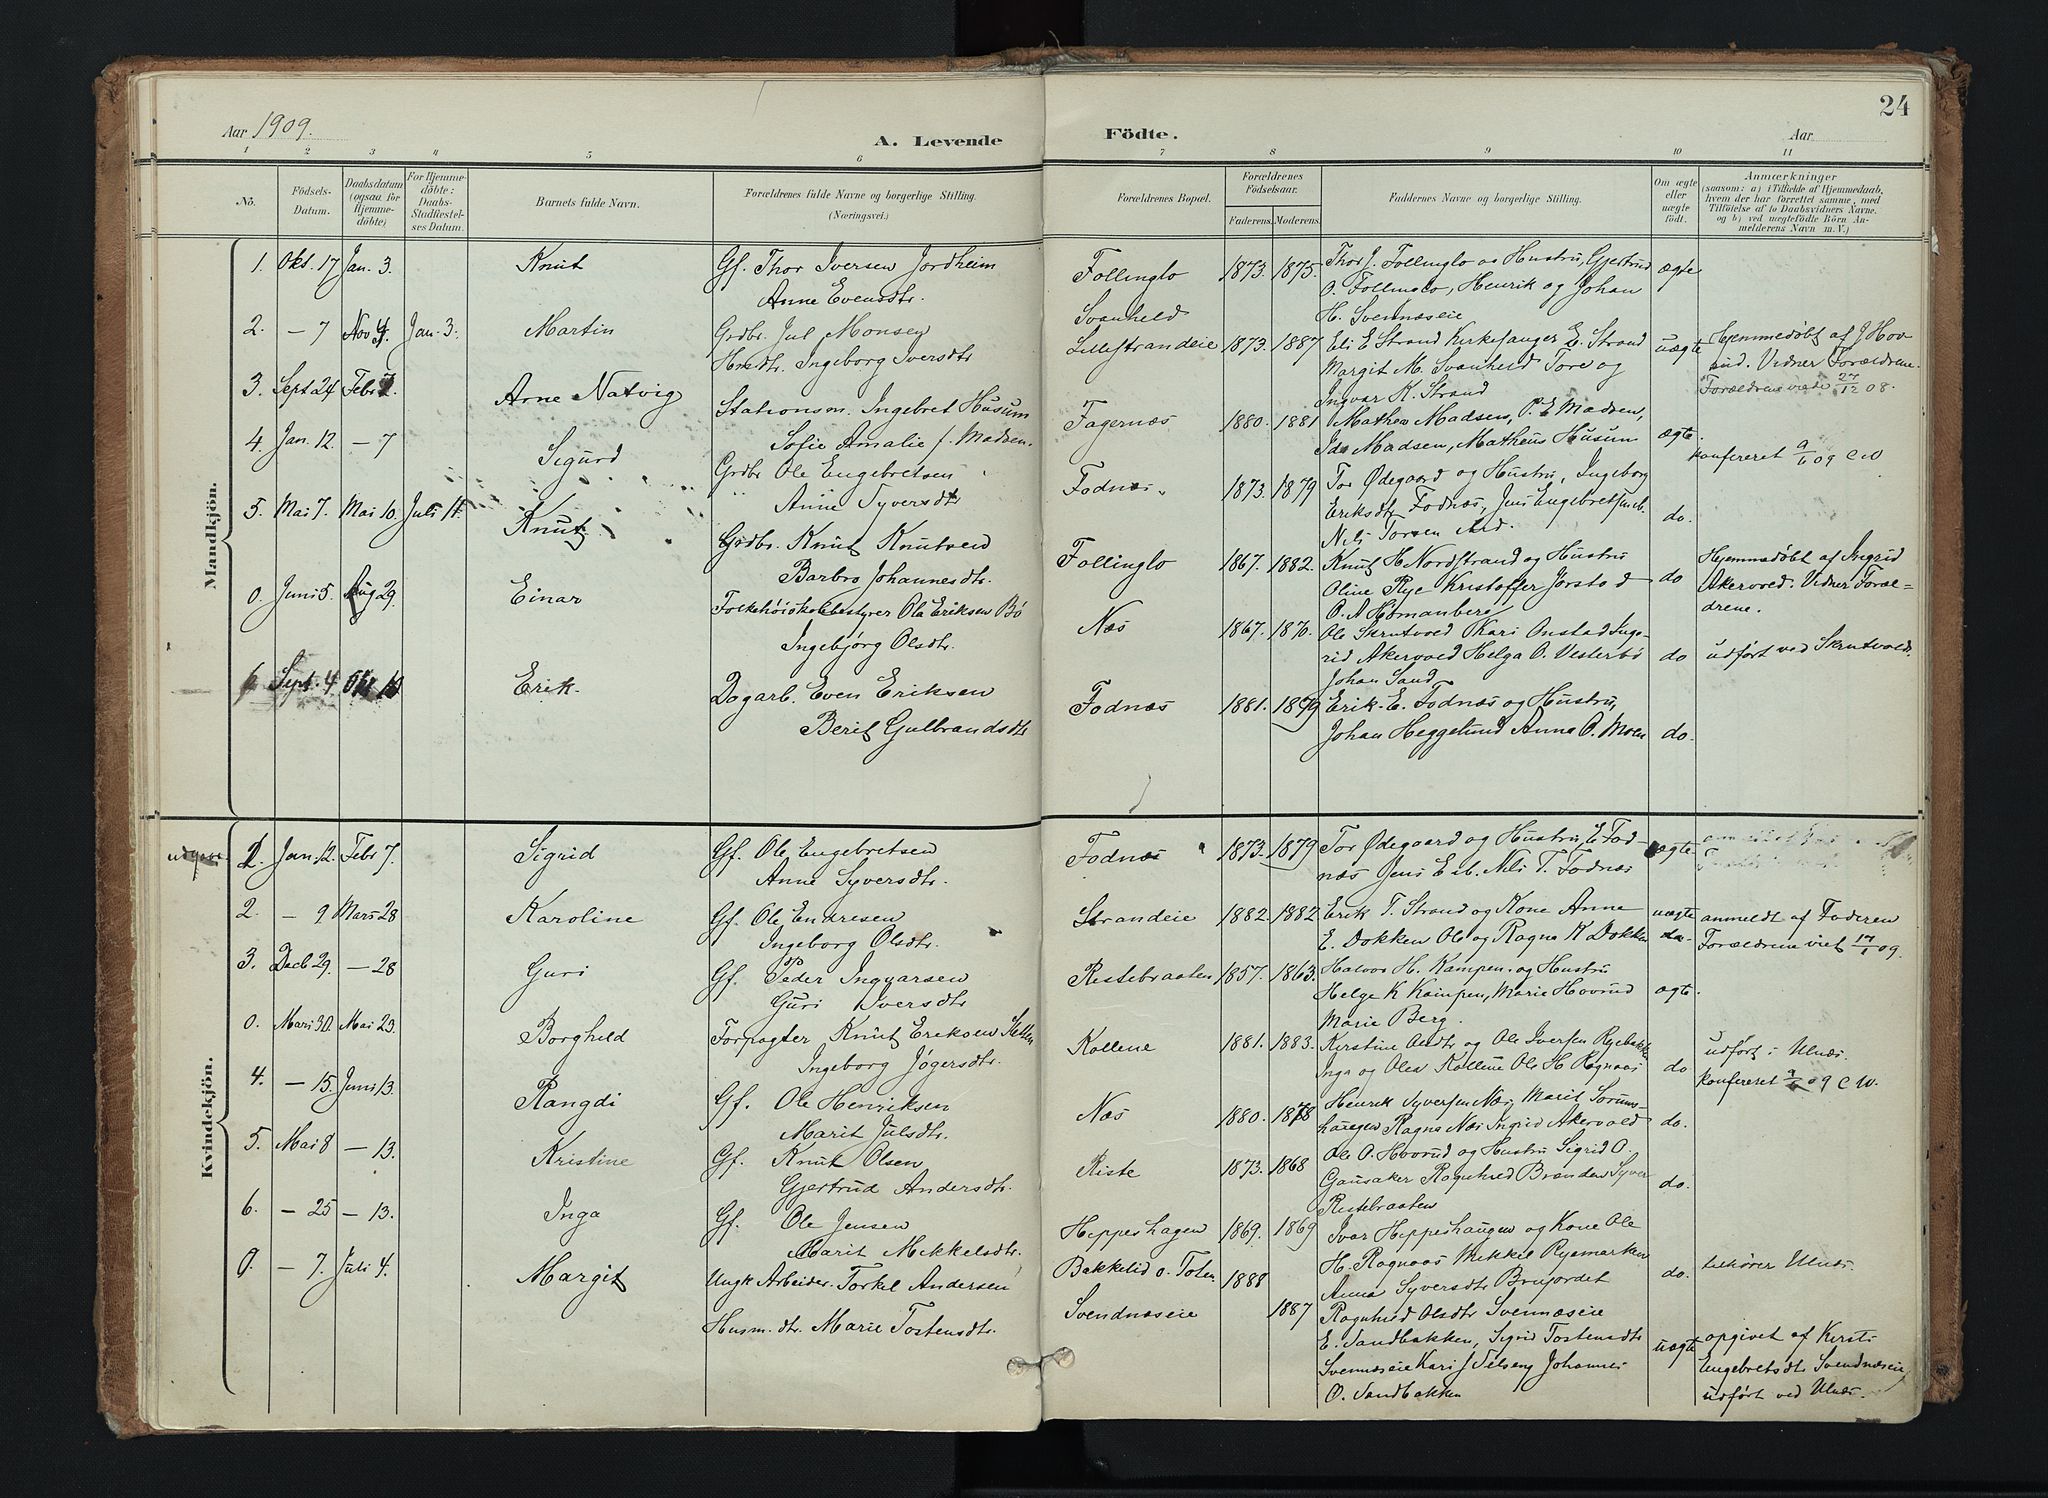 Aar 1909.
A. Levende
Födte.
Aar
24
1 2 3 4 5 6 7 8 9 10 11
No.
Födsels-Datum.
Daabsdatum (ogsaa for Hjemme-döbte)
For Hjemme-döbte: Daabs-Stadfæstel-ses Datum.
Barnets fulde Navn.
Forældrenes fulde Navne og borgerlige Stilling. (Næringsvei.)
Forældrenes Bopæl.
Forældrenes Födselsaar.
Faderens. Moderens.
Faddernes Navne og borgerlige Stilling.
Om ægte eller uægte födt.
Anmærkninger
(saasom: a) i Tilfælde af Hjemmedaab, hvem der har forrettet samme, med Tilföielse af to Daabsvidners Navne, og b) ved uægtefödte Börn An-melderens Navn m.V.)
Mandkjön.
1. Okt. 17 Jan. 3. Knut Gf. Thor Iversen Jordheim
Anne Evensdtr.
Follinglo 1873. 1875. Thor J. Follinglo og Hustru, Gjertrud ægte
O. Follinglo, Henrik og Johan
H. Svennæseie
2. – 7 Nov Jan. 3. Martin Grdbr. Jul Monsen
Ingeborg Iversdtr
Svanheld
Lillestrandeie 1873. 1887 Eli E Strand Kirkesanger E. Strand uægte Hjemmedøbt af J Hov-
Margit M. Svanheld Tore og sund. Vidner Forældrene.
Ingvar K. Strand Forældrene viede 27/12 08.
3. Sept 24 Febr 7. Arne Natvig Stationsm. Ingebret Husum
Sofie Amalie f. Madsen.
Fagernæs 1880. 1881 Mathea Madsen, P. E Madsen, ægte.
Ida Madsen, Matheus Husum konfereret 9/6 09 CW
4. Jan. 12. – 7 Sigurd Grdbr Ole Engebretsen
" Anne Syversdtr
Fodnæs 1873. 1879 Tor Ødegaard og Hustru, Ingeborg
Eriksdtr Fodnæs, Jens Engebretsen ib. do.
Nils Torsen
5. Mai 7. Mai 10. Juli 11. Knut Grdbr. Knut Knutsen
Barbro Johannesdtr.
Follinglo 1867. 1882. Knut H Nordstrand og Hustru do Hjemmedøbt af Ingrid
Oline Rye Kristoffer Jørstad Akervold. Vidner Foræl-
O. A Hømanberg drene.
0. Juni 5. Aug 29. Einar Folkehøiskolebestyrer Ola Eriksen Bø
Ingebjørg Olsdtr.
Næs 1867. 1870. Ole Skrutvold Kari Onstad Inge-
rid Akervold Helga O. Vesterbø do udført ved Skrutvold.
Johan Sand
6 Sept. 4 Okt 10 Erik Dagarb. Even Eriksen
Berit Gulbrandsdtr
Fodnæs 1881. 1879 Erik E. Fodnæs og Hustru,
Johan Heggelund Anna O. Moen do.
Kvindekjön.
udgaar. 1. Jan. 12. Febr 7. Sigrid Gf. Ole Engebretsen
Anne Syversdtr.
Fodnæs 1873. 1879 Tor Ødegaard og Hustru, E. Fod- ægte
næs Jens E ib. Nils T. Fodnæs
2. – 9 Mars 28 Karoline Gf. Ole Endresen
Ingeborg Olsdtr.
Strandeie 1882. 1882 Erik T. Strand og Kone Anne uægte anmeldt af Faderen
E. Dokken Ole og Ragna K Dokken Forældrene viet 17/1 09.
3. Decb 29. – 28 Guri Gf. Peder Ingvarsen
Guri Iversdtr
Ristebraaten 1857. 1863. Halvor H. Kampen og Hustru
Helge K Kampen, Marie Hovrud ægte.
Marie Berg.
0. Mars 30. Mai 23. Borghild Forpagter Knut Eriksen
Ingeborg Jøgersdtr.
Kollene 1881. 1883. Kerstine Olsdtr og Ole Iversen Ryebakke udført i Ulnæs.
Inga og Olea Kollene Ole H. Ragnaas do konfereret 9/6 09 CW.
4. – 15. Juni 13. Rangdi Gf. Ole Henriksen
Marit Julsdtr.
Næs 1880. 1878 Henrik Syversen Næs, Marit Sorums-
haugen Ragna Næs Ingrid Akervold do.
5. Mai 8 – 13. Kristine Gf. Knut Olsen
Gjertrud Andersdtr.
Riste 1873. 1868 Ole O. Hovrud og Hustru Sigrid O.
Gausaker Ragnhild Brænden Syver do.
Ristebraaten
6. – 25 – 13. Inga Gf. Ole Jensen
Marit Mikkelsdtr.
Heppeshagen 1869. 1869 Ivar Heppeshaugen og Kone Ole
H. Ragnaas Mikkel Ryemarken do. tilhører Ulnæs.
Anna Syversdtr Brujordet
0. – 7. Juli 4. Margit Ungk Arbeider Torkel Andersen
Husm. dtr. Marie Tostensdtr.
Bakkelid o. Toten 1888
Svendnæseie 1887 Ragnhild Olsdtr Svennæseie
E. Sandbakken, Sigrid Tostensdtr uægte opgivet af Kersti
Svennæseie Kari J Telseng Johannes Engebretsdtr Svendnæseie
O. Sandbakken udført ved Ulnæs.